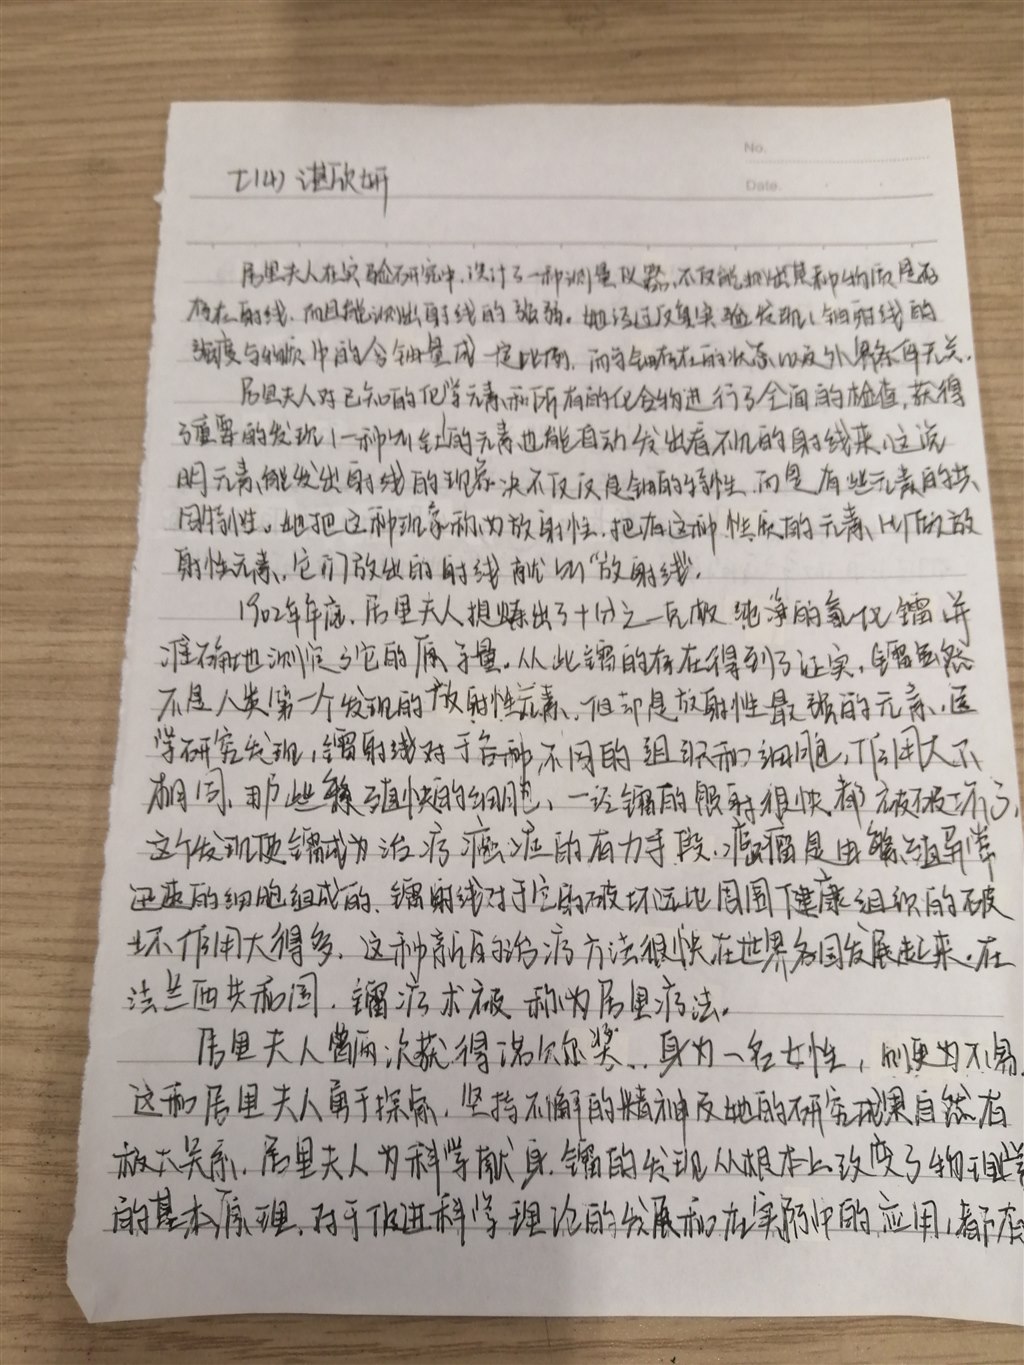 No.
Date.
七(4) 谌欣妍
居里夫人在实验研究中,设计了一种测量仪器,不仅能测出某种物质是否
存在射线,而且能测出射线的强弱。她经过反复实验发现:铀射线的
强度与物质中的含铀量成一定比例,而与铀存在的状态以及外界条件无关。
居里夫人对已知的化学元素和所有的化合物进行了全面的检查,获得
了重要的发现:一种叫钍的元素也能自动发出看不见的射线来,这说
明元素能发出射线的现象决不仅仅是铀的特性,而是有些元素的共
同特性。她把这种现象称为放射性,把有这种性质的元素叫做放
射性元素,它们放出的射线就叫“放射线”。
1902年年底,居里夫人提炼出了十分之一克极纯净的氯化镭,并
准确地测定了它的原子量。从此镭的存在得到了证实。镭虽然
不是人类第一个发现的放射性元素,但却是放射性最强的元素。医
学研究发现,镭射线对于各种不同的组织和细胞,作用大不
相同,那些繁殖快的细胞,一经镭的照射很快都被破坏了,
这个发现使镭成为治疗癌症的有力手段。癌瘤是由繁殖异常
迅速的细胞组成的,镭射线对于它的破坏远比周围健康组织的破
坏作用大得多。这种新的治疗方法很快在世界各国发展起来。在
法兰西共和国,镭疗术被称为居里疗法。
居里夫人曾两次获得诺贝尔奖,身为一名女性,则更为不易。
这和居里夫人勇于探索,坚持不懈的精神及她的研究成果自然有
极大关系。居里夫人为科学献身,镭的发现从根本上改变了物理学
的基本原理,对于促进科学理论的发展和在实际中的应用,都有